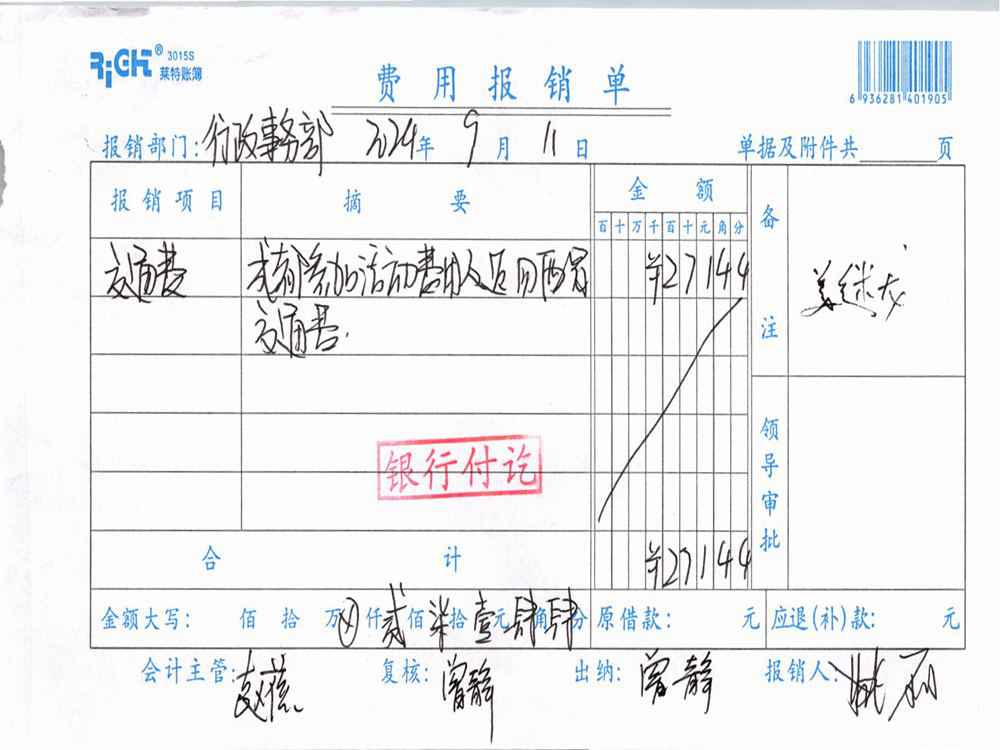 RiGHT® 3015S
莱特账簿
费用报销单
6 936281 401905
报销部门:行政事务部 2024年9月11日 单据及附件共 页
报销项目 摘要 金额 备注
百十万千百十元角分
交通费 参加活动 人员 交通费. ¥27144
银行付讫
领导审批
合计 ¥27144
金额大写: 佰 拾 万 ⊗仟 贰佰 柒拾 壹元 肆角 肆分 原借款: 元 应退(补)款: 元
会计主管: 复核:曾静 出纳:曾静 报销人: